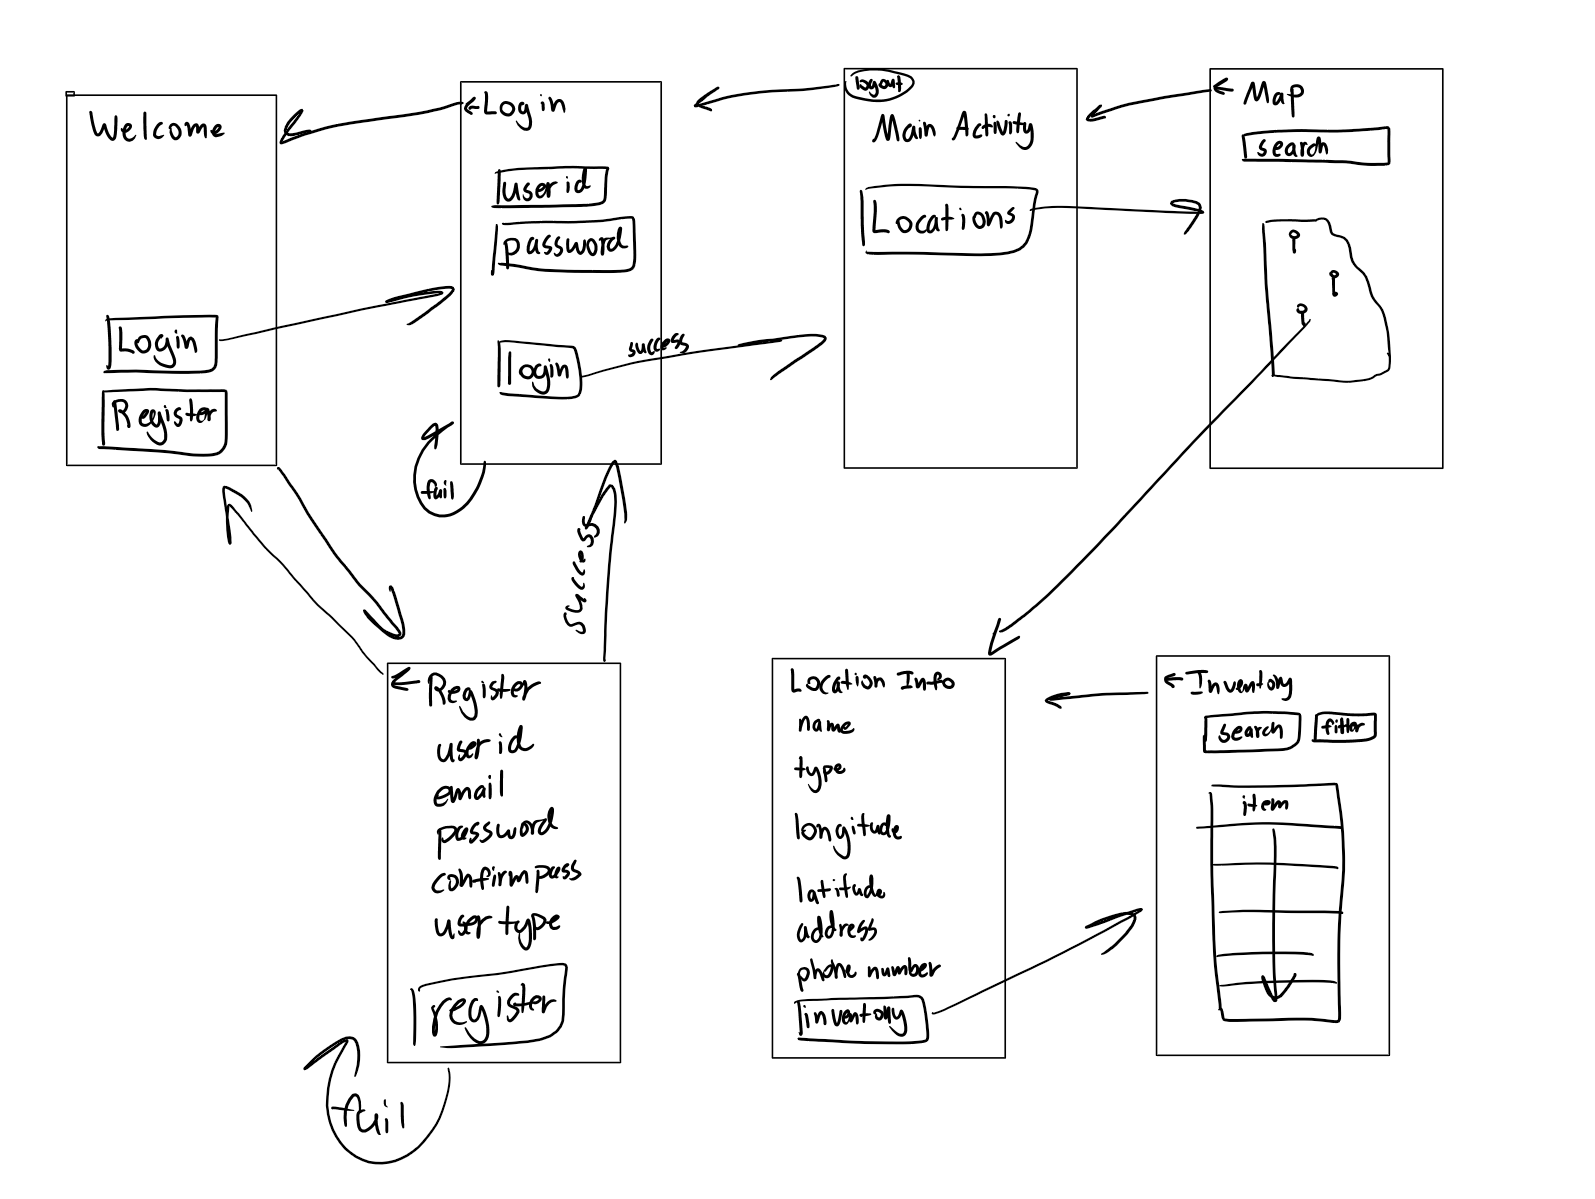 Welcome
Login
Register
Login
user id
password
login
success
fail
logout
Main Activity
Locations
Map
search
success
Register
user id
email
password
confirm pass
user type
register
fail
Location Info
name
type
longitude
latitude
address
phone number
inventory
Inventory
search
filter
item